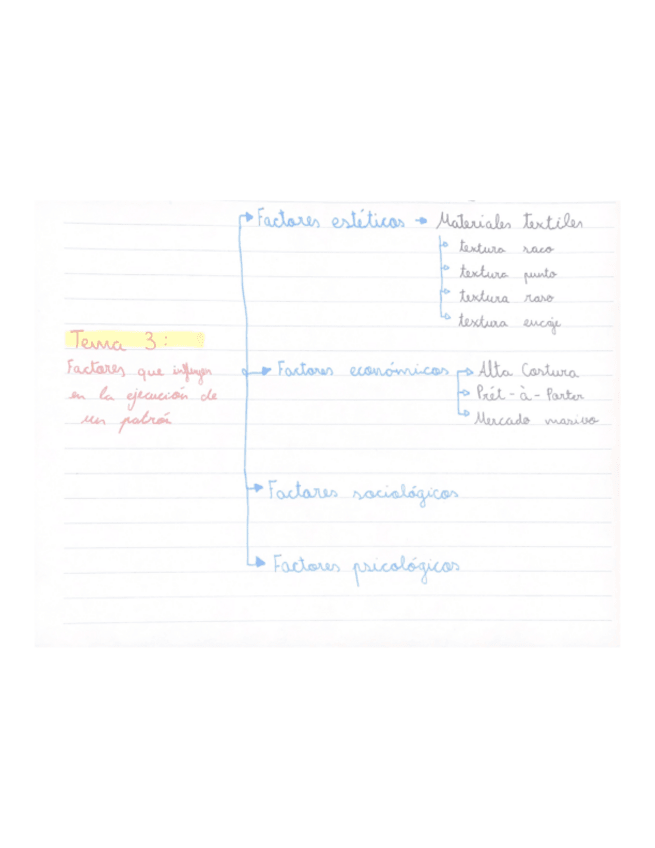 Factores estéticos → Materiales textiles
textura saco
textura punto
textura raso
textura encaje
Tema 3:
Factores que influyen
en la ejecución de
un patrón
Factores económicos
Alta Costura
Prêt-à-Porter
Mercado masivo
Factores sociológicos
Factores psicológicos